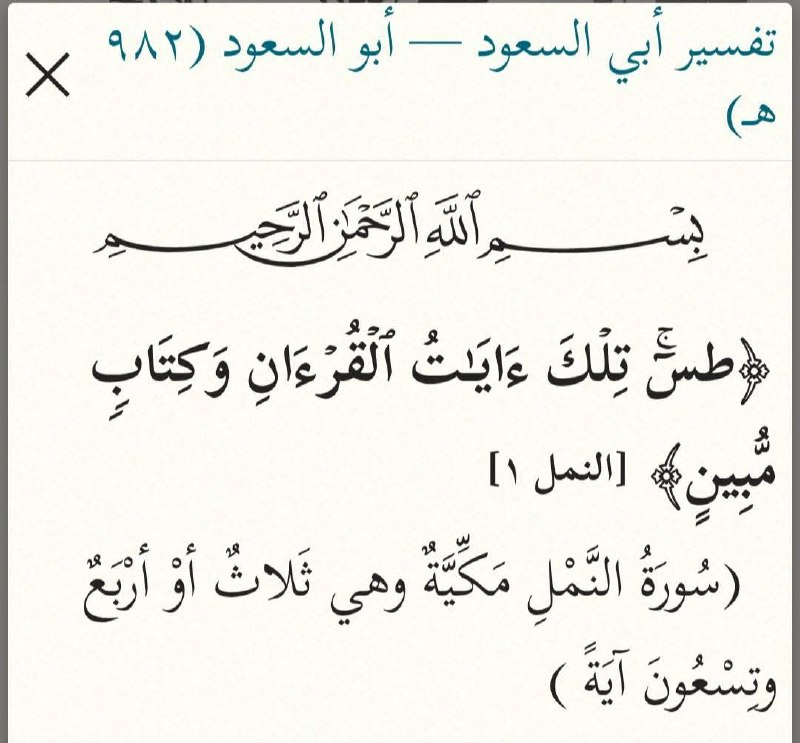 تفسير أبي السعود — أبو السعود (٩٨٢
هـ)
بِسْمِ ٱللَّهِ ٱلرَّحْمَٰنِ ٱلرَّحِيمِ
﴿طسۤۚ تِلۡكَ ءَایَـٰتُ ٱلۡقُرۡءَانِ وَكِتَابࣲ
مُّبِینٍ﴾ [النمل ١]
(سُورَةُ النَّمْلِ مَكِّيَّةٌ وهي ثَلاثٌ أوْ أرْبَعٌ
وتِسْعُونَ آيَةً )